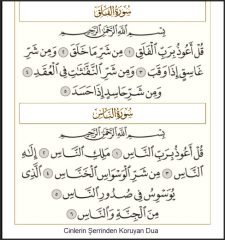 سورة الفلق
بسم الله الرحمن الرحيم
قل أعوذ برب الفلق ١ من شر ما خلق ٢ ومن شر
غاسق إذا وقب ٣ ومن شر النفاثات في العقد ٤
ومن شر حاسد إذا حسد ٥
سورة الناس
بسم الله الرحمن الرحيم
قل أعوذ برب الناس ١ ملك الناس ٢ إله
الناس ٣ من شر الوسواس الخناس ٤ الذي
يوسوس في صدور الناس ٥
من الجنة والناس ٦
Cinlerin Şerrinden Koruyan Dua